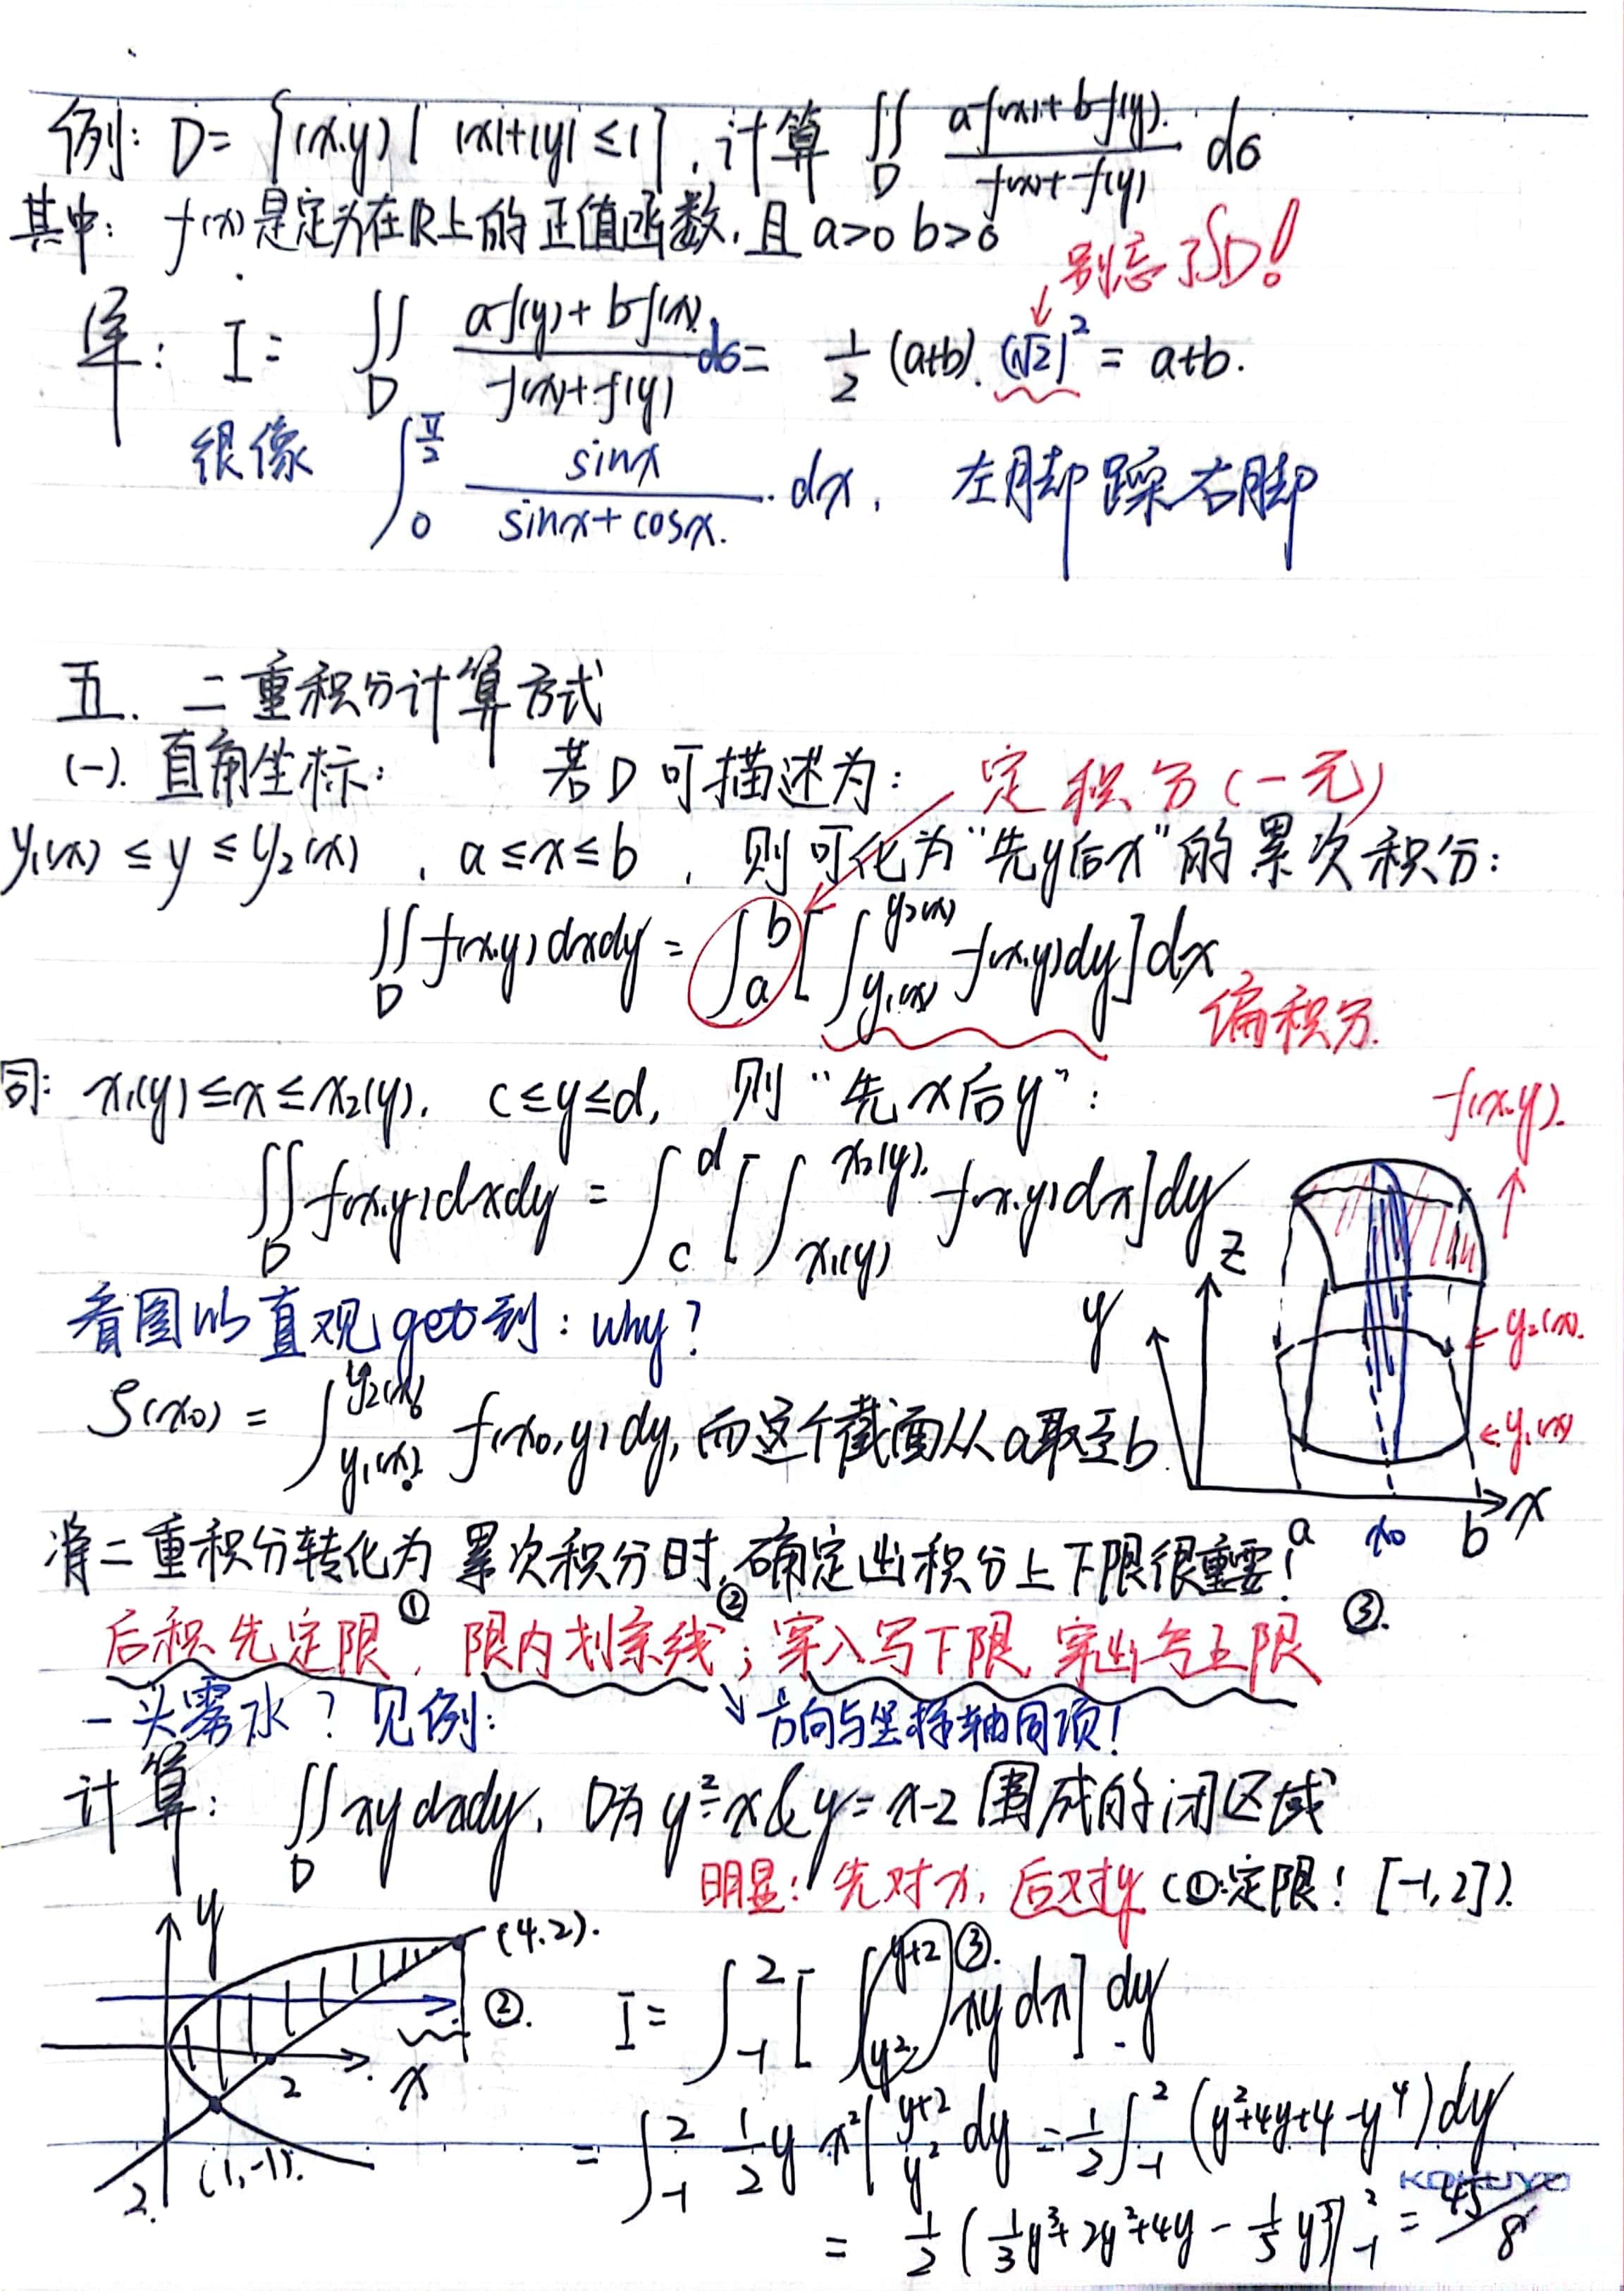 例: D = {(x,y) | |x|+|y| ≤1}, 计算 ∬_D (af(x)+bf(y))/(f(x)+f(y)) dσ
其中: f(x)是定为在R上的正值函数, 且 a>0 b>0
别忘了S_D!
I = ∬_D (af(y)+bf(x))/(f(x)+f(y)) dσ = 1/2 (a+b)·(√2)² = a+b.
很像 ∫_0^{π/2} sinx/(sinx+cosx) dx, 左脚踩右脚
五. 二重积分计算方式
(一). 直角坐标: 若D可描述为: 定积分(一元)
y₁(x) ≤ y ≤ y₂(x), a≤x≤b, 则可化为"先y后x"的累次积分:
∬_D f(x,y)dxdy = ∫_a^b [∫_{y₁(x)}^{y₂(x)} f(x,y)dy]dx
偏积分.
同: x₁(y)≤x≤x₂(y), c≤y≤d, 则"先x后y":
f(x,y).
∬_D f(x,y)dxdy = ∫_c^d [∫_{x₁(y)}^{x₂(y)} f(x,y)dx]dy
z
y
看图以直观get到: why?
y₂(x).
S(x₀) = ∫_{y₁(x₀)}^{y₂(x₀)} f(x₀,y)dy, 而这个截面从a取至b.
y₁(x)
a x₀ b x
将二重积分转化为累次积分时, 确定出积分上下限很重要!
后积先定限①, 限内划条线②; 穿入写下限, 穿出写上限 ③.
一头雾水? 见例: ↘方向与坐标轴同项!
计算: ∬_D xy dxdy, D为y²=x & y=x-2围成的闭区域
明显: 先对x, 后对y (①定限! [-1,2]).
y (4,2).
②.
2 x
(1,-1).
2.
I = ∫_{-1}^2 [∫_{y²}^{y+2} xy dx] dy
③.
= ∫_{-1}^2 1/2 y x² |_{y²}^{y+2} dy = 1/2 ∫_{-1}^2 (y²+4y+4-y⁴)dy
KOKUYO
= 1/2 (1/3 y³+2y²+4y - 1/5 y⁵)|_{-1}^2 = 45/8